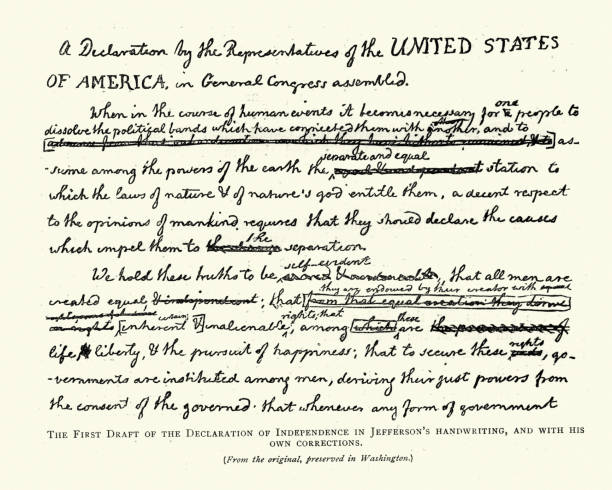 A Declaration by the Representatives of the UNITED STATES
OF AMERICA, in General Congress assembled.
When in the course of human events it becomes necessary for one people to
dissolve the political bands which have connected them with another, and to
as-
separate and equal
-sume among the powers of the earth the station to
which the laws of nature & of nature's god entitle them, a decent respect
to the opinions of mankind requires that they should declare the causes
the
which impel them to separation.
self-evident
We hold these truths to be sacred & undeniable, that all men are
they are endowed by their creator with
created equal & independent; that from that equal creation they derive
rights; that these
inherent & inalienable, among which are the preservation of
rights
life, & liberty, & the pursuit of happiness; that to secure these ends, go-
-vernments are instituted among men, deriving their just powers from
the consent of the governed. that whenever any form of government
THE FIRST DRAFT OF THE DECLARATION OF INDEPENDENCE IN JEFFERSON'S HANDWRITING, AND WITH HIS
OWN CORRECTIONS.
(From the original, preserved in Washington.)